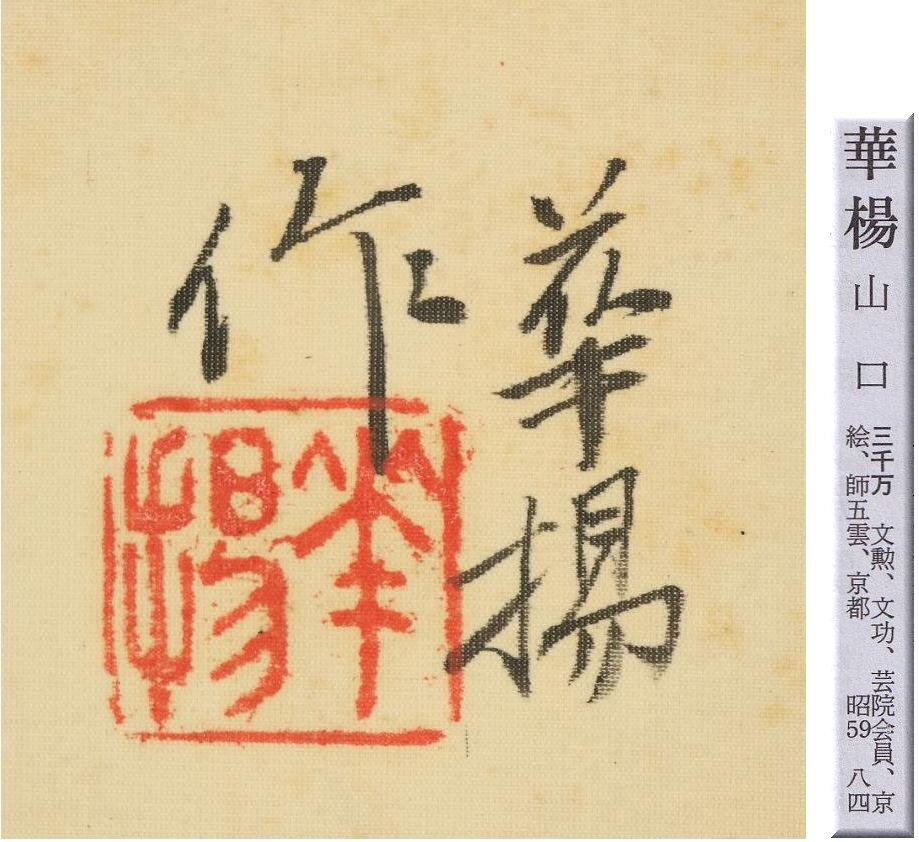 華楊
作
華楊
華楊 山口
三千万 文勲、文功、芸院会員、京
絵、師五雲、京都 昭59 八四